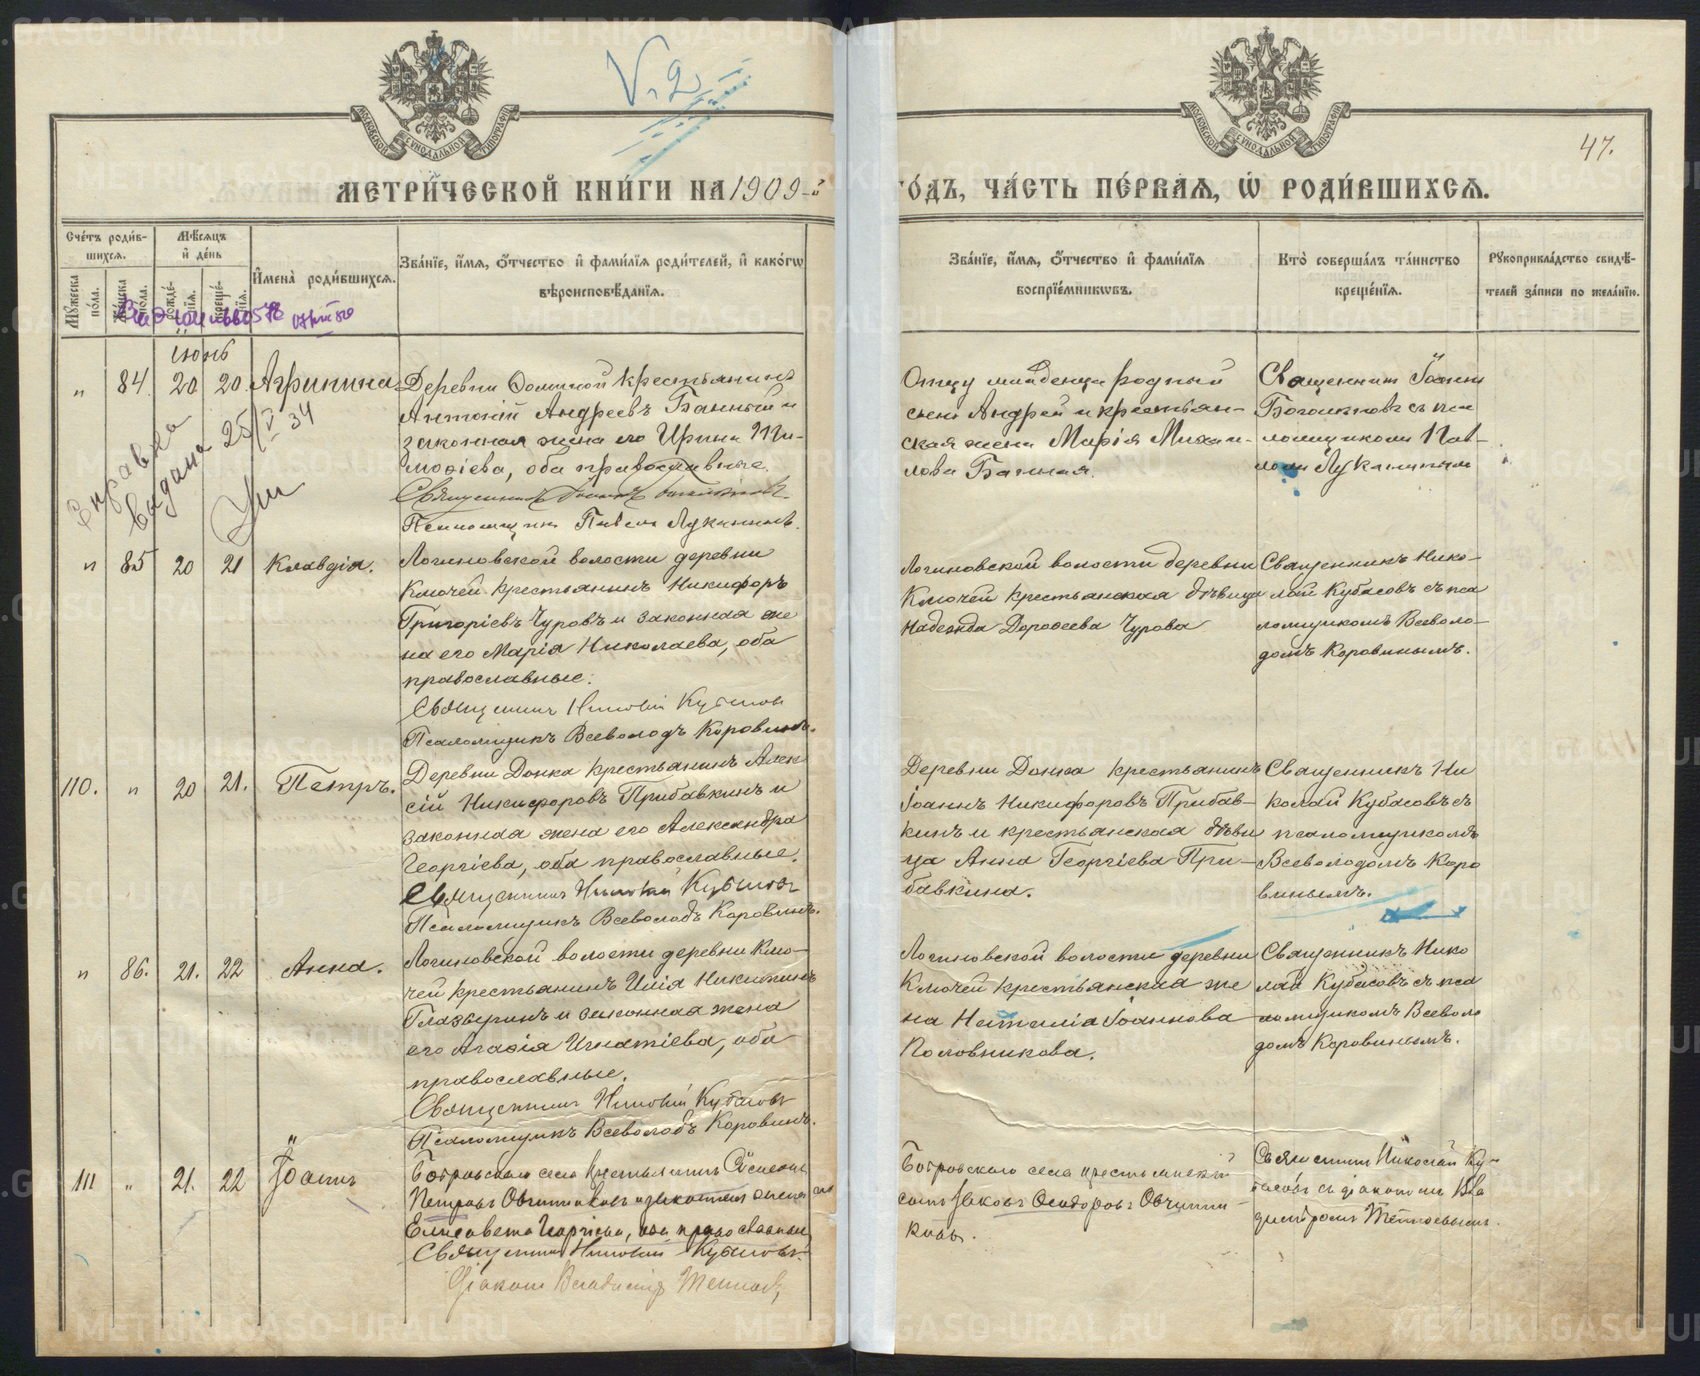 47.
МЕТРИ́ЧЕСКОЙ КНИ́ГИ НА 1909-й
ГО́ДЪ, ЧА́СТЬ ПЕ́РВАЯ, Ѡ҆ РОДИ́ВШИХСЯ.
Сче́тъ роди́в-
шихся.
Мꙋжеска по́ла.
Же́нска по́ла.
Мѣ́сяцъ
и҆ де́нь
рожде́нїя.
креще́нїя.
И҆мена̀ роди́вшихся.
Зва́нїе, и҆́мя, ѻ҆́тчество и҆ фами́лїя роди́телей, и҆ како́гѡ
вѣроисповѣ́данїя.
Зва́нїе, и҆́мя, ѻ҆́тчество и҆ фами́лїя
воспрїе́мникѡвъ.
Кто̀ соверша́лъ та́инство
креще́нїя.
Рꙋкоприкла́дство свидѣ́-
телей за́писи по жела́нїю.
Іюнь
" 84. 20 20. Агрипина
Деревни крестьянинъ
Антоній Андреевъ Банный и
законная жена его Ирина Ти-
мофіева, оба православные.
Священникъ Іоаннъ
Псаломщикъ Павелъ Лукининъ.
Отцу младенца родный
сынъ Андрей и крестьян-
ская жена Марія Михаи-
лова Банная.
Священник Іоанн
съ пса-
ломщиком Пав-
лом Лукининым
Справка
выдана 25/V 34
" 85 20 21 Клавдія.
Логиновской волости деревни
Ключей крестьянинъ Никифоръ
Григоріевъ Чуровъ и законная же
на его Марія Николаева, оба
православные.
Священник Николай Кубасов
Псаломщикъ Всеволодъ Коровинъ.
Логиновской волости деревни
Ключей крестьянская дѣвица
Надежда Дорофеева Чурова
Священникъ Нико-
лай Кубасовъ съ пса
ломщикомъ Всеволо-
домъ Коровинымъ.
110. " 20 21. Петръ.
Деревни Донка крестьянинъ Алек
сій Никифоровъ Прибавкинъ и
законная жена его Александра
Георгіева, оба православные.
Священник Николай Кубасов
Псаломщикъ Всеволодъ Коровинъ.
Деревни Донка крестьянинъ
Іоаннъ Никифоровъ Прибав-
кинъ и крестьянская дѣви
ца Анна Георгіева При-
бавкина.
Священникъ Ни
колай Кубасовъ съ
псаломщикомъ
Всеволодомъ Коро
винымъ.
" 86. 21. 22 Анна.
Логиновской волости деревни Клю-
чей крестьянинъ Илія Никитинъ
Глазыринъ и законная жена
его Агафія Игнатіева, оба
православные.
Священник Николай Кубасовъ
Псаломщикъ Всеволодъ Коровинъ.
Логиновской волости деревни
Ключей крестьянская же
на Наталія Іоаннова
Половникова.
Священникъ Нико
лай Кубасовъ съ пса
ломщикомъ Всеволо
домъ Коровинымъ.
111 " 21. 22 Іоаннъ
села крестьянинъ Симеонъ
Петровъ Овчинниковъ и законная жена его
Елисавета Георгіева, оба православные
Священник Николай Кубасовъ
Діаконъ Владиміръ
села крестьянскій
сынъ Яковъ Феодоровъ Овчинни
ковъ.
Священник Николай Ку-
басовъ съ діакономъ Вла
диміромъ
METRIKI.GASO-URAL.RU